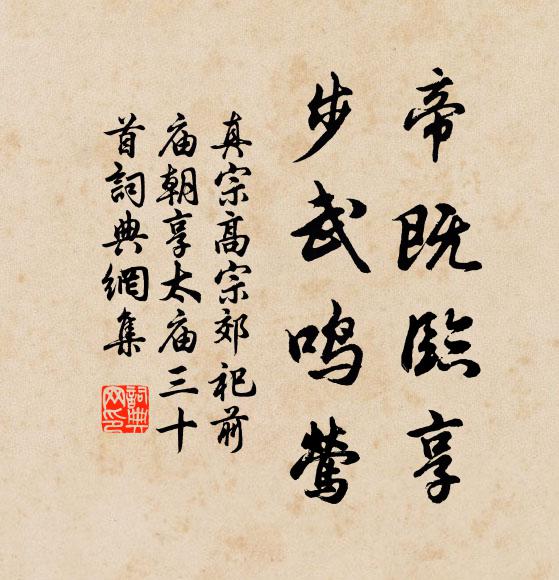 帝既臨享
步武鸣鶯
真宗高宗郊祀前
庙朝享太庙三十
首詞典網集
詞典
网印